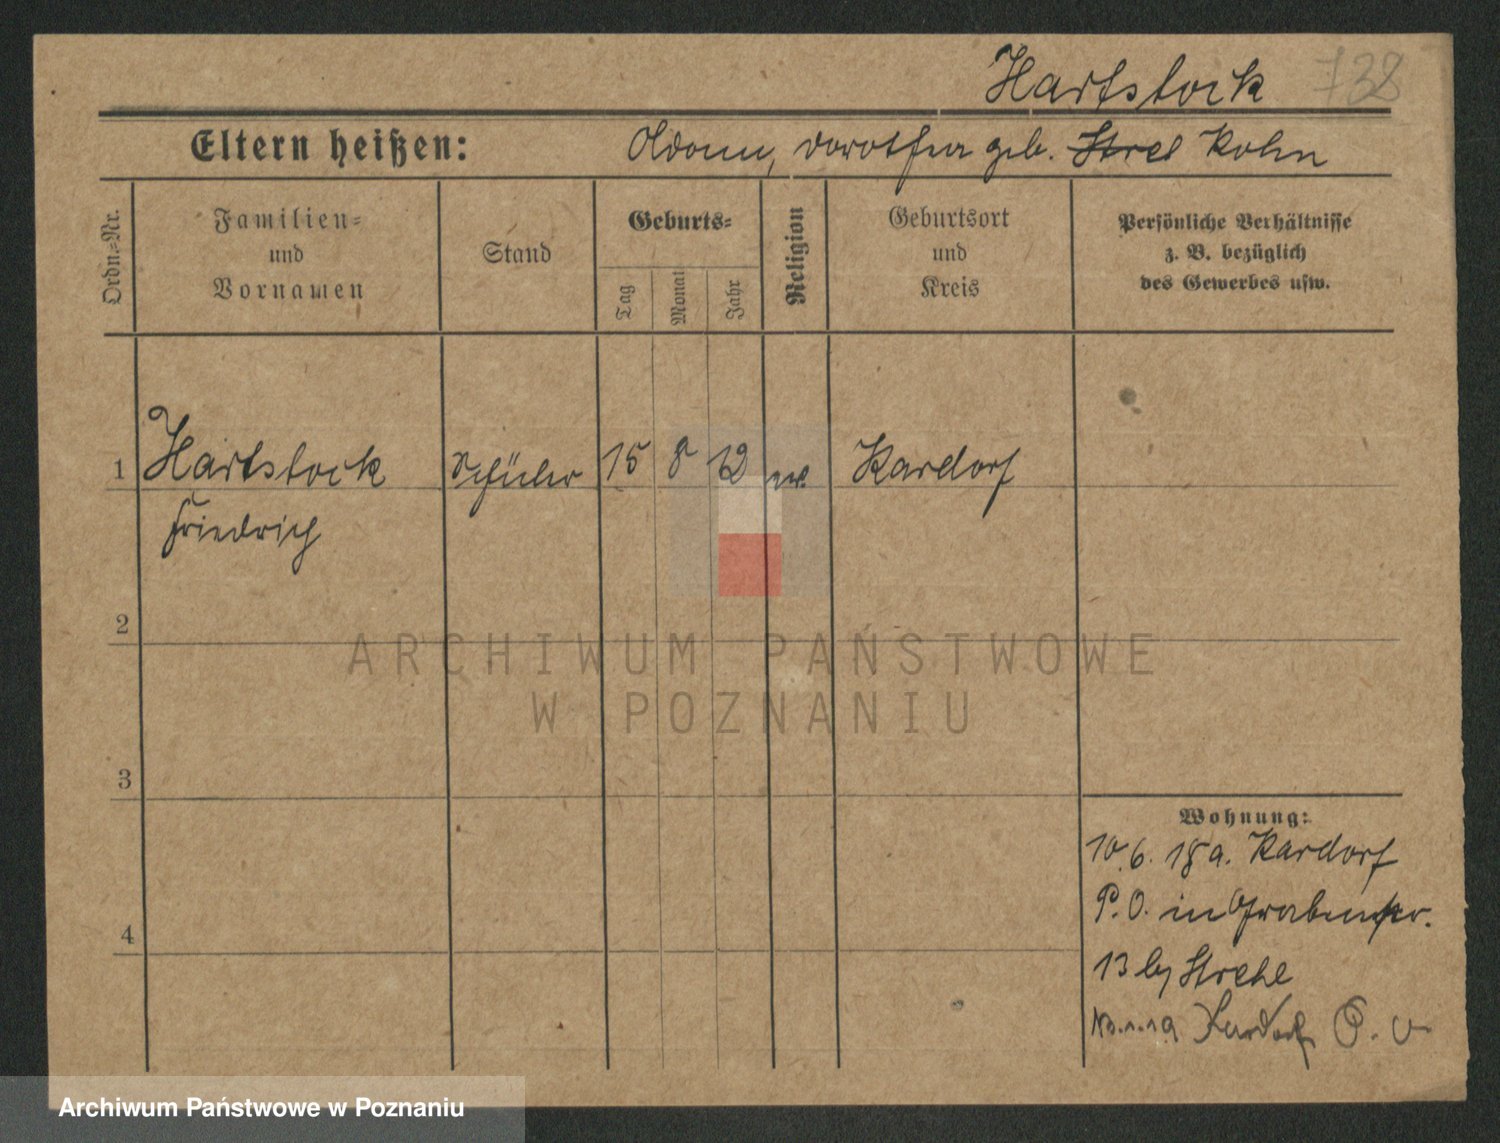 Hartstock 738
Eltern heißen: Adam, Dorothea geb. Strel Kohn
Ordn.-Nr.
Familien-
und
Vornamen
Stand
Geburts-
Tag
Monat
Jahr
Religion
Geburtsort
und
Kreis
Persönliche Verhältnisse
z. B. bezüglich
des Gewerbes usw.
1 Hartstock Schüler 15 8 12 ev. Kardorf
Friedrich
2
ARCHIWUM PAŃSTWOWE
W POZNANIU
3
Wohnung:
10.6.18 a. Kardorf
P. O. in Grabenstr.
4
13 by Strehl
1.19 Kardorf P. O
Archiwum Państwowe w Poznaniu